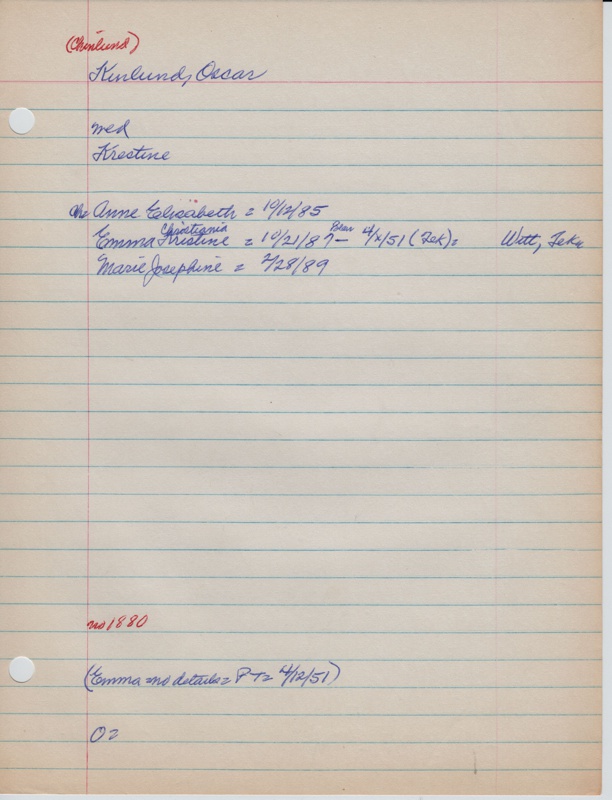 (Chinlund)
Kinlund, Oscar
med
Krestine
Ch= Anne Elisabeth = 10/12/85
Christiania
Emma Kristine = 10/21/87 - 4/x/51 (Tek)= Witt, Teka
Marie Josephine = 2/28/89
no 1880
(Emma = no details = PT = 4/12/51)
O=